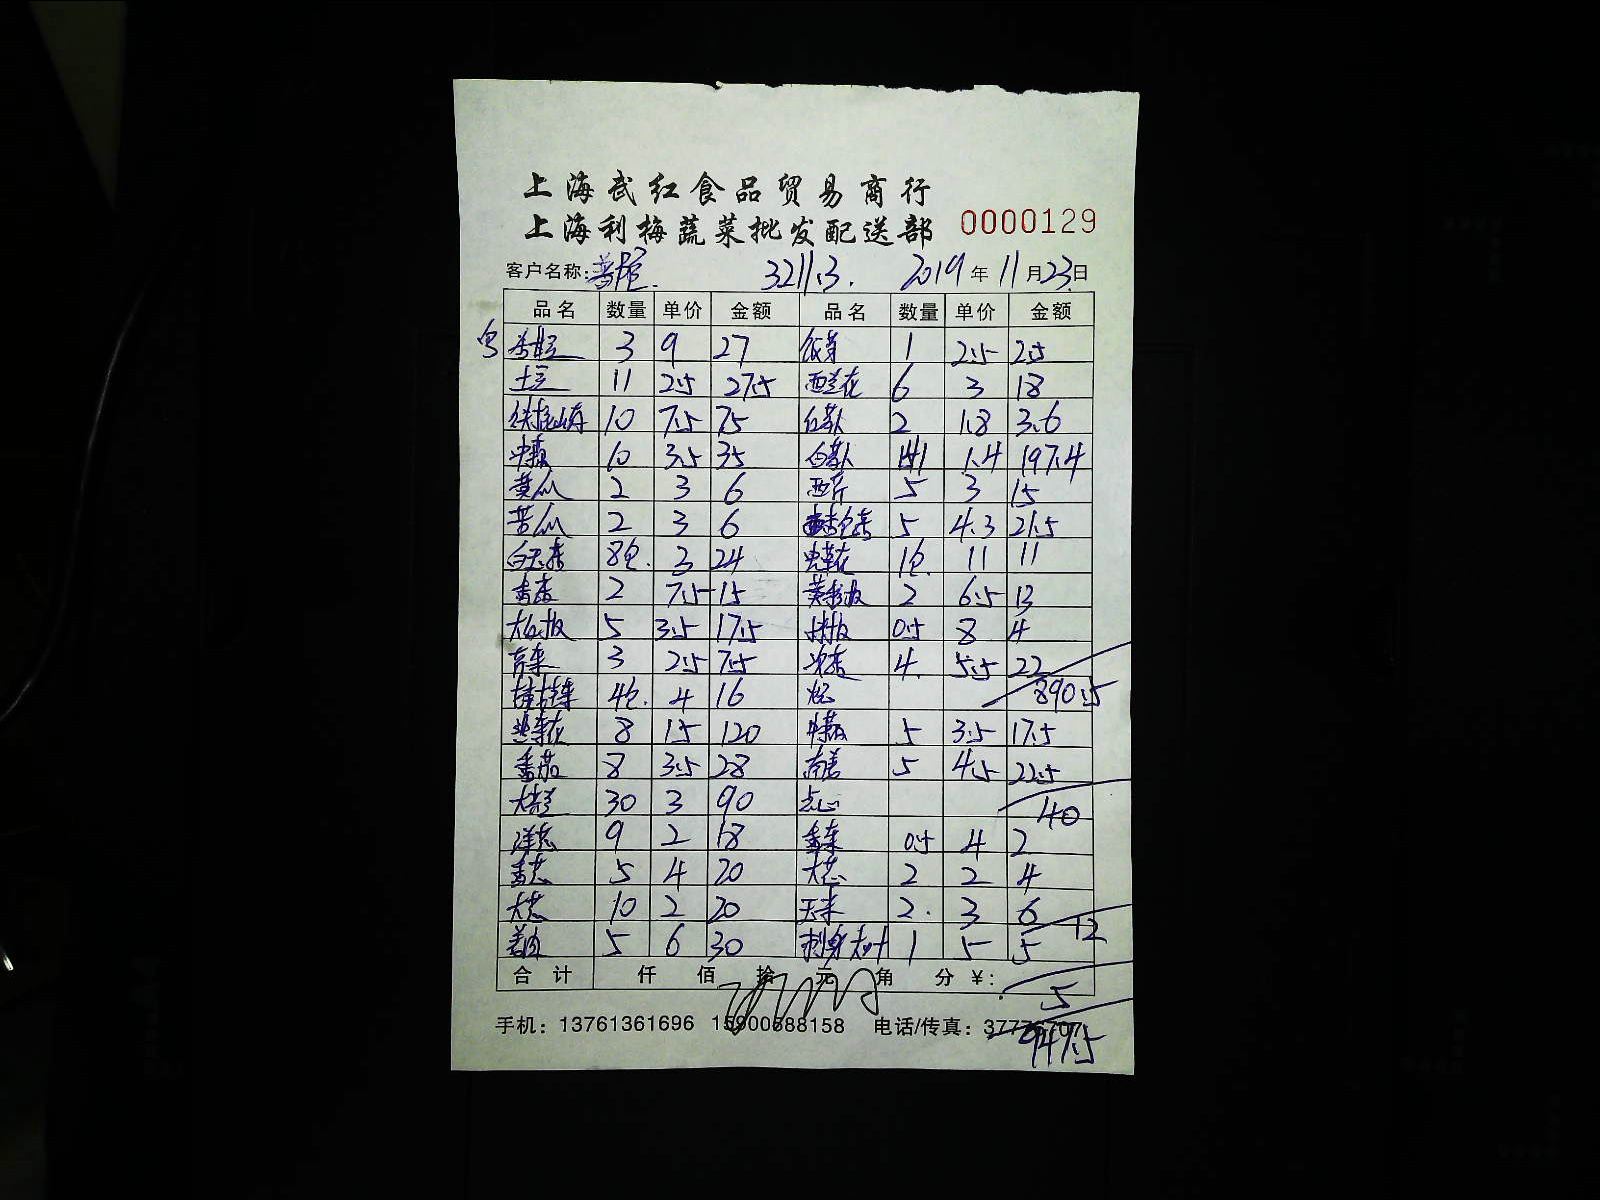 上海武红食品贸易商行
上海利梅蔬菜批发配送部 0000129
客户名称: 3211.3. 2019年11月23日
品名 数量 单价 金额 品名 数量 单价 金额
3 9 27 1 2.5 2.5
土豆 11 2.5 27.5 西兰花 6 3 18
铁棍山药 10 7.5 75 红萝卜 2 1.8 3.6
10 3.5 35 白萝卜 141 1.4 197.4
黄瓜 2 3 6 西芹 5 3 15
苦瓜 2 3 6 5 4.3 21.5
白玉菇 8包. 3 24 虫草花 1包. 11 11
香菜 2 7.5 15 2 6.5 13
5 3.5 17.5 0.5 8 4
3 2.5 7.5 4. 5.5 22
4包. 4 16 890.5
8 15 120 5 3.5 17.5
番茄 8 3.5 28 5 4.5 22.5
30 3 90 点心 40
洋葱 9 2 18 香菜 0.5 4 2
香葱 5 4 20 大葱 2 2 4
大葱 10 2 20 玉米 2. 3 6 12
姜肉 5 6 30 刺身大叶 1 5 5
合计 仟 佰 拾 元 角 分 ¥:
5
手机: 13761361696 15900688158 电话/传真:
949.5